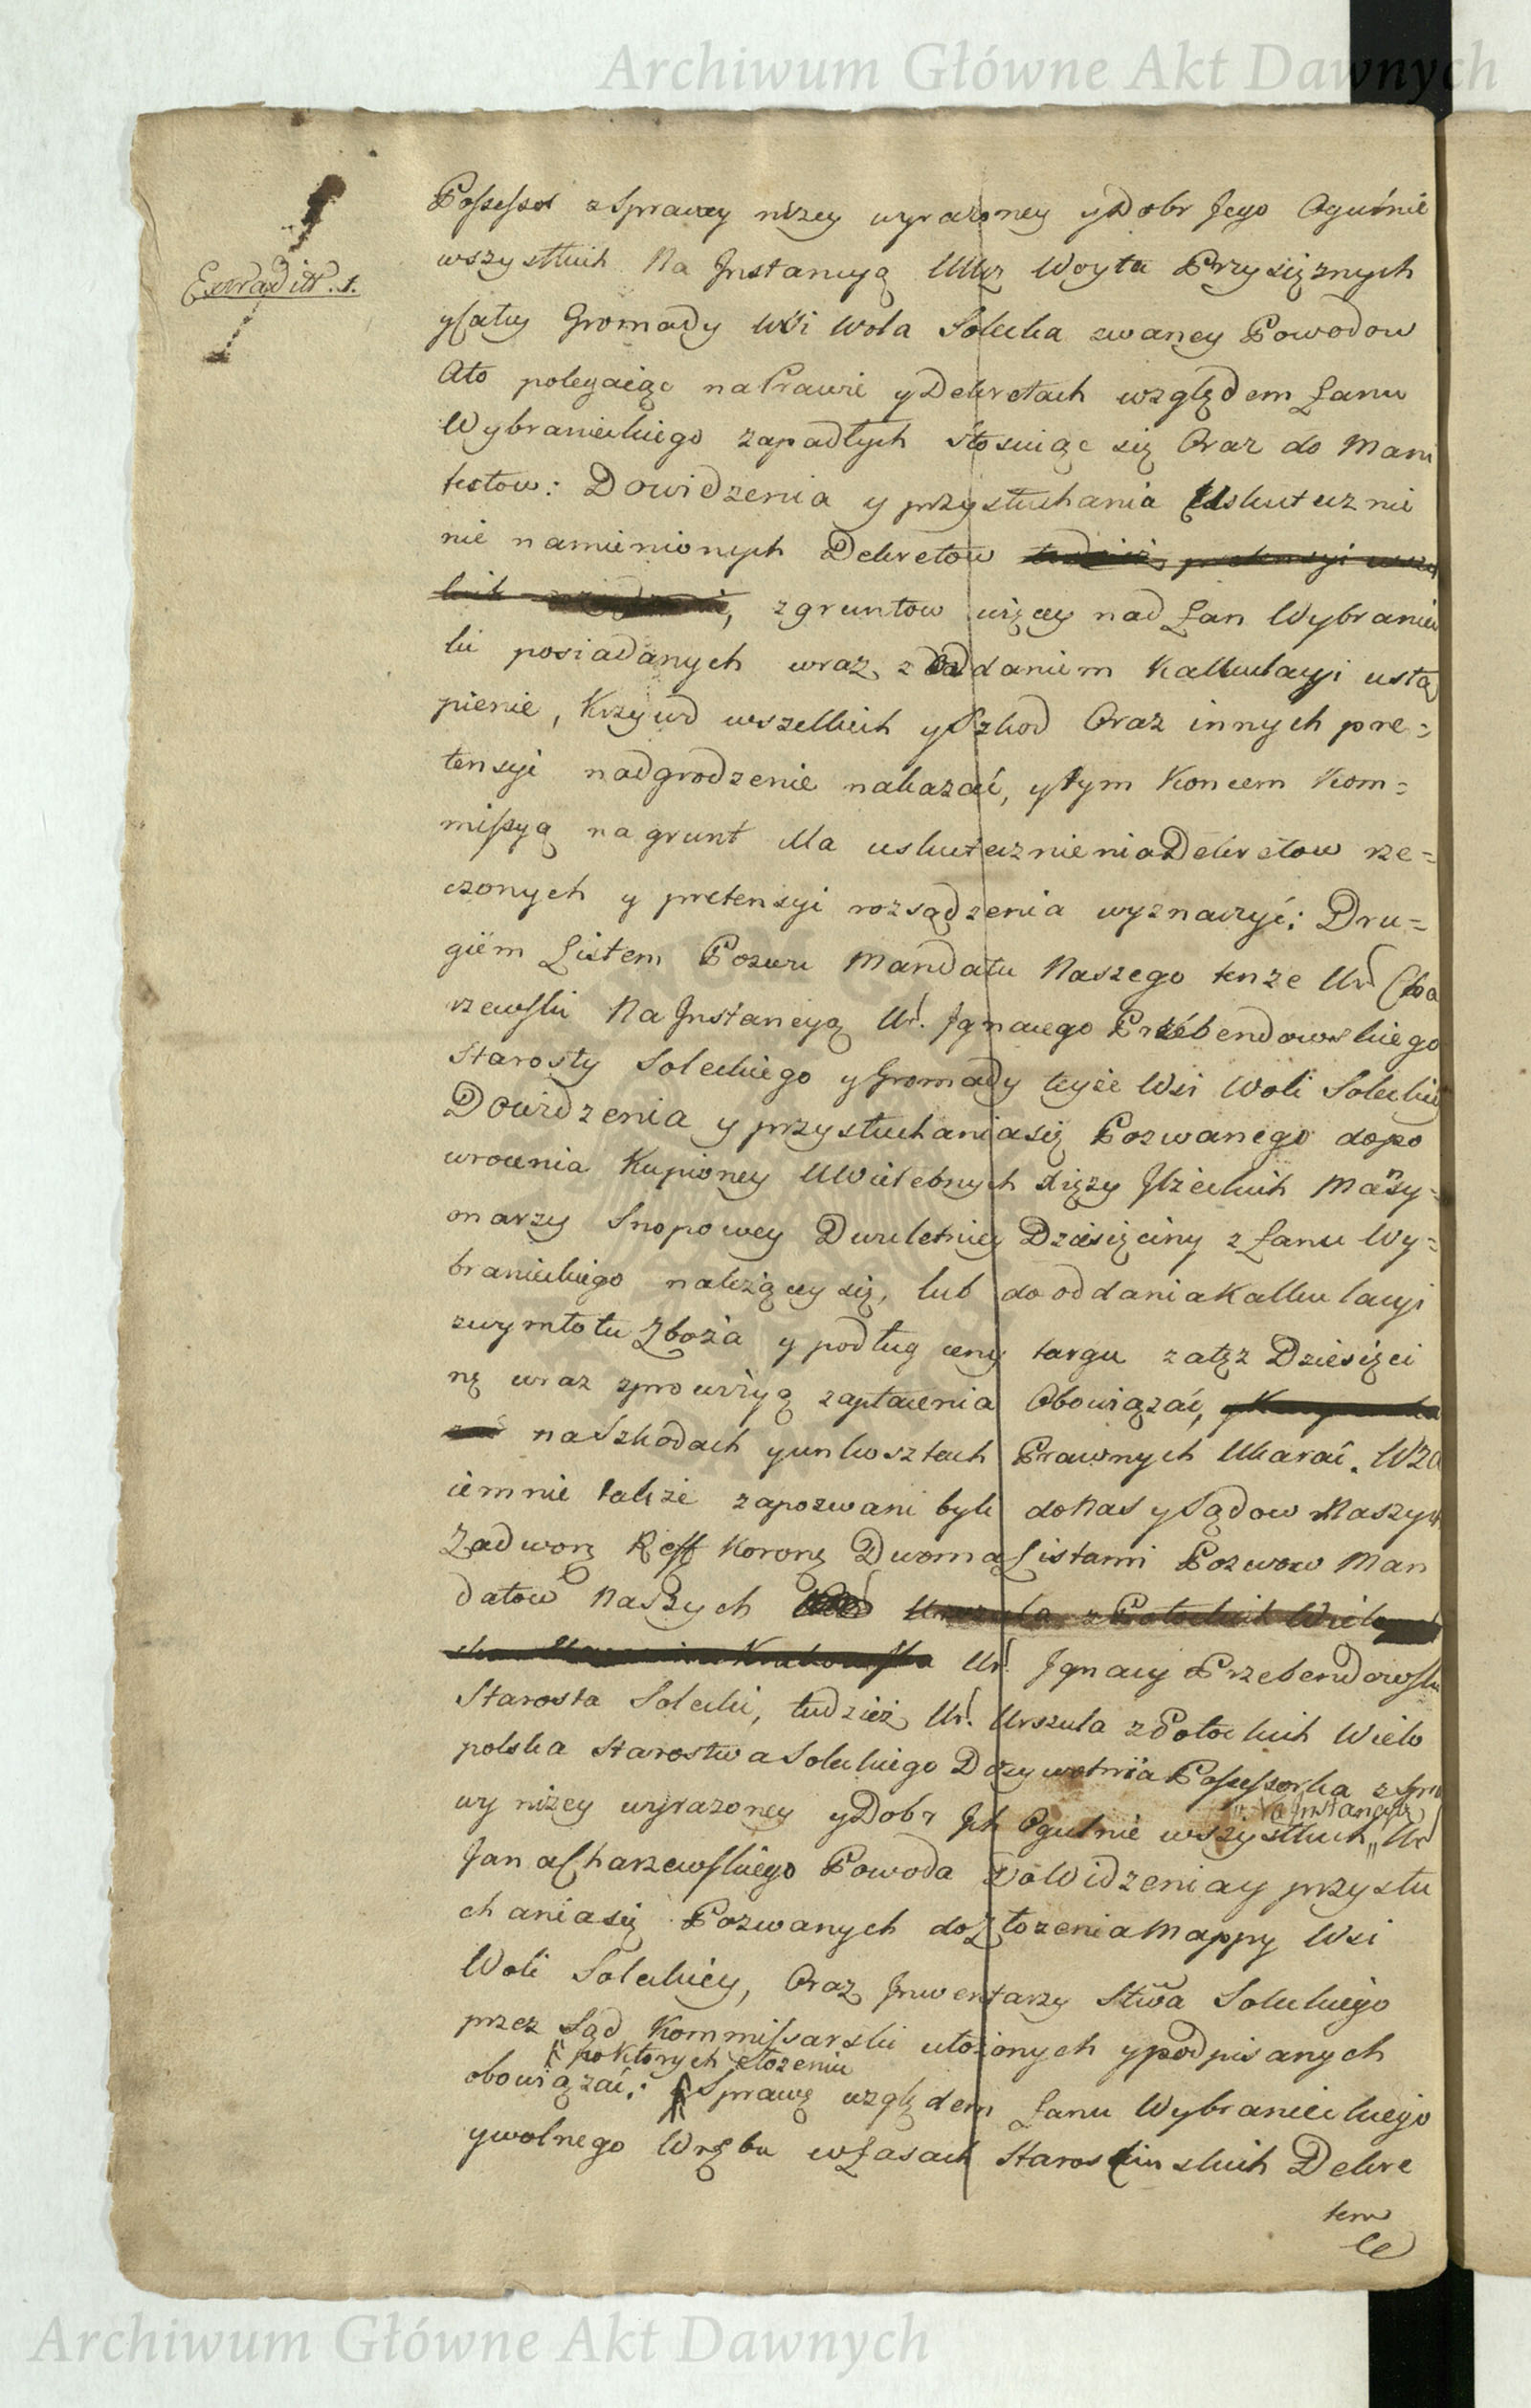 Archiwum Główne Akt Dawnych
Possessor z Sprawy niżey wyrażoney y Dobr Jego Ogulnie
Extradit. 1.
wszystkich Na Jnstancyą UUcz Woyta Przysięznych
y całey Gromady Wsi Wola Solecka zwaney Powodow
Ato polegaiąc na Prawie y Dekretach względem Łanu
Wybranieckiego zapadłych stosuiąc się Oraz do Mani
festow: Dowidzenia y przysłuchania Uskutecznie
nie namienionych Dekretow tudzież pretensyi wsze
lkich, z gruntow więcey nad Łan Wybraniec
ki posiadanych wraz z Oddaniem Kalkulacyi ustą
pienie, Krzywd wszelkich y Szkod Oraz innych pre=
tensyi nadgrodzenie nakazać, y tym Koncem Kom=
missyą na grunt dla uskutecznienia Dekretow rze=
czonych y pretensyi rozsądzenia wyznaczyć: Dru=
giem Listem Pozwu Mandatu Naszego tenze Ur Cha
rzewski Na Jnstancyą Ur. Jgnacego Przebendowskiego
Starosty Soleckiego y Gromady teyże Wsi Woli Soleckiey
Dowidzenia y przysłuchania się Pozwanego dopo
wrocenia Kupioney UWielebnych Xięzy Jłżeckich Mansy=
onarzy Snopowey Dwuletniey Dziesięciny z Łanu Wy=
branieckiego należącey się, lub do oddania Kalkulacyi
z wymłotu Zboża y podług ceny targu zatęz Dziesięci
nę wraz z prowizyą zapłacenia Obowiązać,
na Szkodach y unkosztach Prawnych Ukarać. Wza
iemnie także zapozwani byli do Nas y Sądow Naszych
Zadwor Reff Koron Dwoma Listami Pozwow Man
datow Naszych Urszula z Potockich Wielopol
ska Krakowska Ur. Jgnacy Przebendowski
Starosta Solecki, tudzież Ur. Urszula z Potockich Wielo
polska Starostwa Soleckiego Dożywotnia Possessorka z Spra
wy niżey wyrażoney y Dobr Jch Ogulnie wszystkich „ Ur
„ Na Jnstancyą
Jana Charzewskiego Powoda Do Widzenia y przysłu
chania się Pozwanych do Złożenia Mappy Wsi
Woli Soleckiey, Oraz Jnwentarzy Stwa Soleckiego
przez Sąd Kommissarski ułożonych y podpisanych
po Ktorych złożeniu
obowiązać: Sprawę względem Łanu Wybranieckiego
y wolnego Wrębu w Lasach Starościnskich Dekre
tem
Archiwum Główne Akt Dawnych